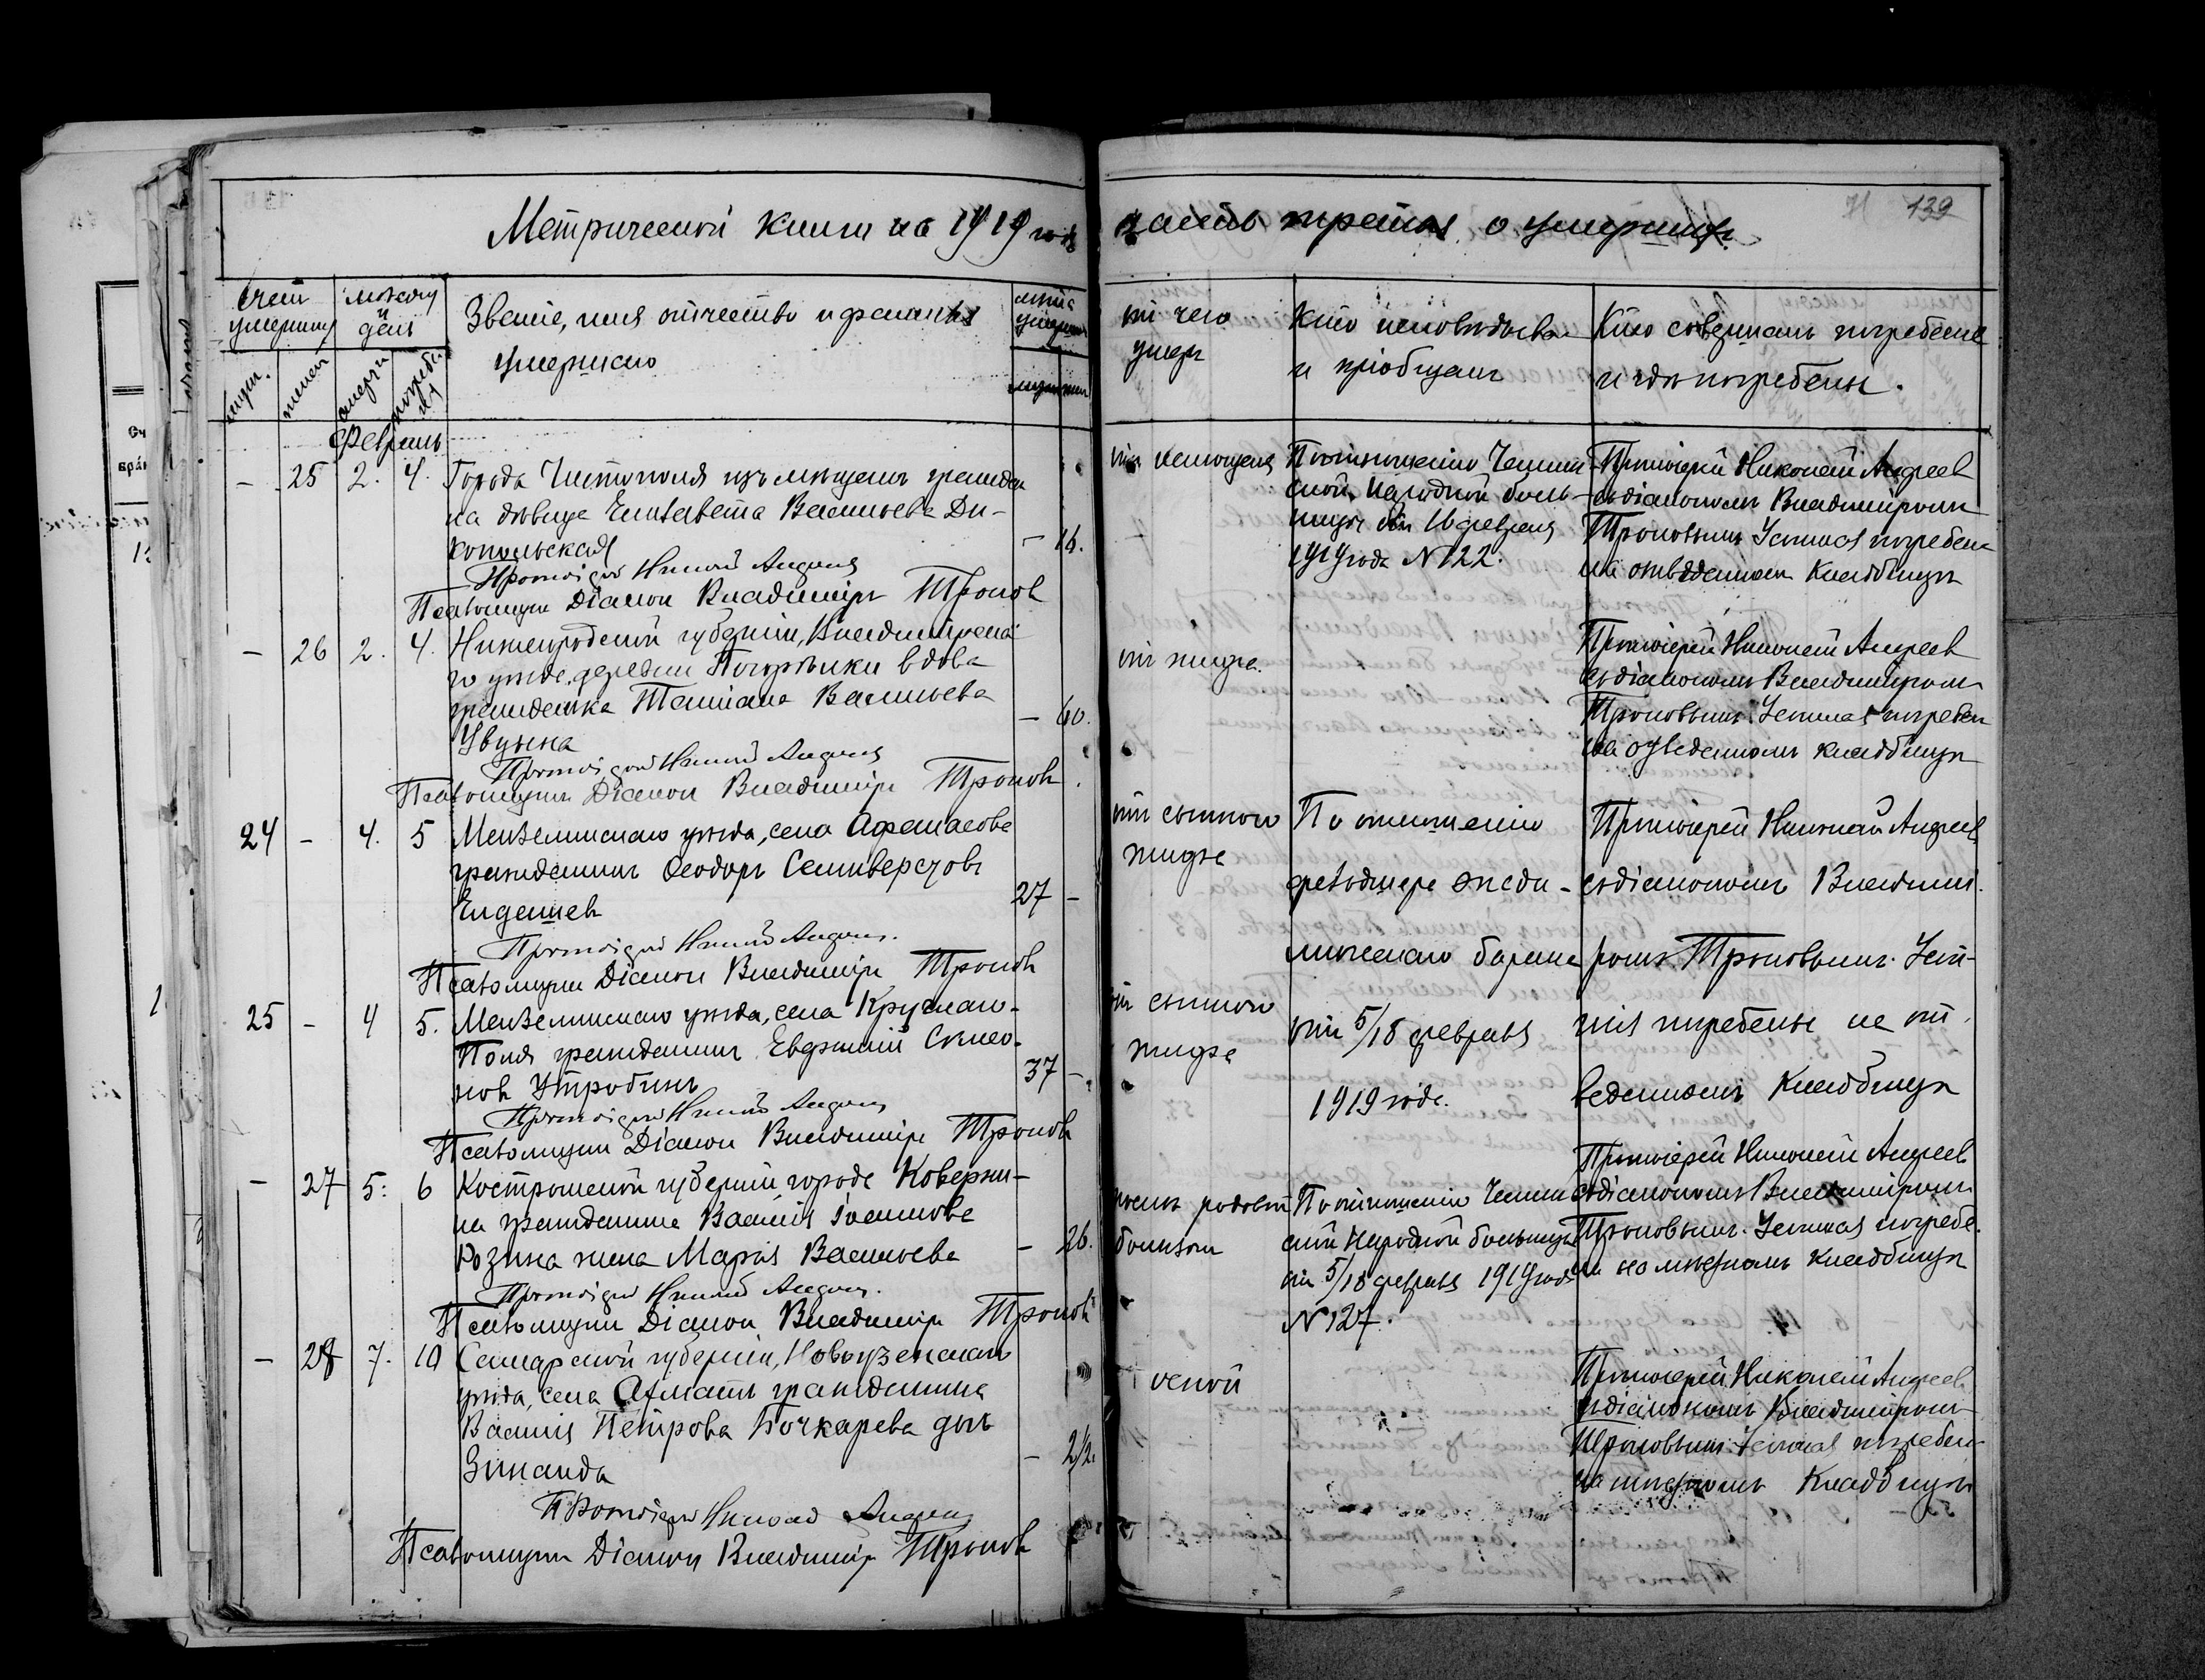 Метрической книги на 1919 годъ
часть третья о умершихъ.
139
Счет умерших
Месяц и день
Званіе, имя отчество и фамилія умершаго
лета умерш
от чего умеръ
Кто исповедыва и пріобщалъ
Кто совершалъ погребеніе и где погребены.
мущ.
женск
смерти
погребенія
Февраль
- 25 2. 4.
Города Чистополя изъ мещанъ граждан
ка девица Елизавета Васильева Ди-
копольская
- 16.
Протоіерей Николай Андреев
Псаломщик Діакон Владиміръ Троновъ
По отношенію Челнин
ской Народной боль-
ницы от 16 февраля
1919 года № 122.
Протоіерей Николай Андреев
съ діакономъ Владиміромъ
Троновымъ. Усопшая погребена
на отведенномъ кладбище
- 26 2. 4.
Нижегородской губерніи, Владимірска
го уезда, деревни вдова
гражданка Татіана Васильева
- 60.
Протоіерей Николай Андреев
Псаломщикъ Діакон Владиміръ Троновъ
от тифа.
Протоіерей Николай Андреев
съ діакономъ Владиміромъ
Троновымъ. Усопшая погребен
на отведенномъ кладбище
24 - 4. 5
Мензелинскаго уезда, села Афанасова
гражданинъ Феодоръ Селиверстовъ
Елдашев
27 -
Протоіерей Николай Андреев.
Псаломщик Діакон Владиміръ Троновъ
от сыпного
тифа
По отношенію
фельдшера эваку-
от 5/18 февраля
1919 года.
Протоіерей Николай Андреев
съ діакономъ Владими-
ромъ Троновымъ. Усоп-
шія погребены на от-
веденномъ кладбище
25 - 4 5.
Мензелинскаго уезда, села Круглаго-
Поля гражданинъ Евграфій
нов Утробинъ
37 -
Протоіерей Николай Андреев
Псаломщик Діакон Владиміръ Троновъ
от сыпного
тифа
- 27 5. 6
Костромской губерніи города Коверни-
на гражданина Василія Іоаннова
Розина жена Марія Васильева
- 26.
Протоіерей Николай Андреев.
Псаломщик Діакон Владиміръ Троновъ
после родовой
болезни
По отношенію Челнин
ской Народной больницы
от 5/18 февраля 1919 года
№ 127.
Протоіерей Николай Андреев
съ діакономъ Владиміромъ
Троновымъ. Усопшая погребе-
на на местномъ кладбище
- 28 7. 10
Самарской губерніи, Новоузенскаго
уезда, села гражданина
Василія Петрова Бочкарева дочь
Зинаида
- 2 1/2.
Протоіерей Николай Андреев
Псаломщик Діакон Владиміръ Троновъ
оспой
Протоіерей Николай Андреев
съ діакономъ Владиміромъ
Троновымъ. Усопшая погребена
на местномъ кладбище